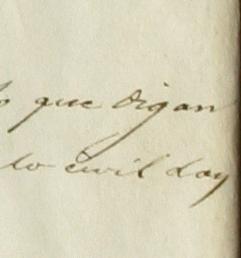 que digan
lo civil day